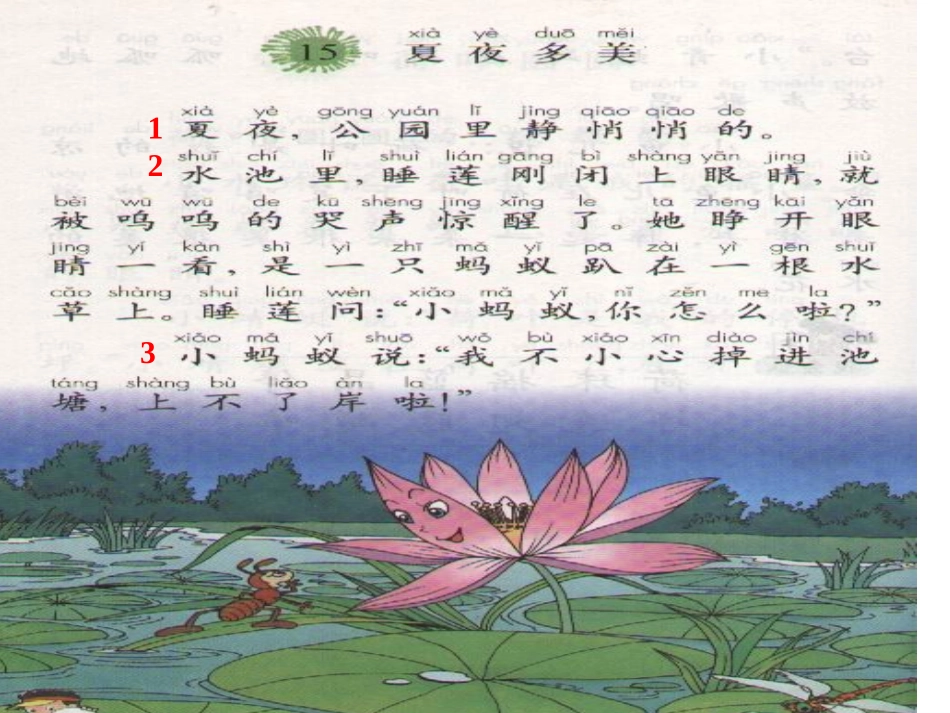 xià yè duō měi
15 夏夜多美
xià yè gōng yuán lǐ jìng qiāo qiāo de
1 夏夜,公园里静悄悄的。
shuǐ chí lǐ shuì lián gāng bì shàng yǎn jing jiù
2 水池里,睡莲刚闭上眼睛,就
bèi wū wū de kū shēng jīng xǐng le tā zhēng kāi yǎn
被呜呜的哭声惊醒了。她睁开眼
jing yí kàn shì yì zhī mǎ yǐ pā zài yì gēn shuǐ
睛一看,是一只蚂蚁趴在一根水
cǎo shàng shuì lián wèn xiǎo mǎ yǐ nǐ zěn me la
草上。睡莲问:“小蚂蚁,你怎么啦?”
xiǎo mǎ yǐ shuō wǒ bù xiǎo xīn diào jìn chí
3 小蚂蚁说:“我不小心掉进池
táng shàng bù liǎo àn la
塘,上不了岸啦!”